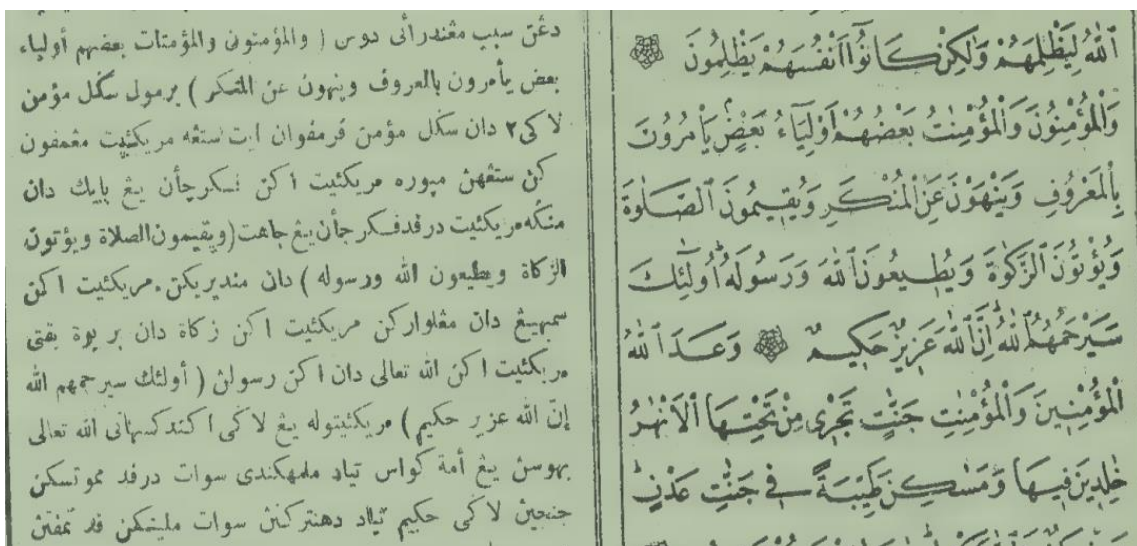 ٱللَّهُ لِيَظْلِمَهُمْ وَلَٰكِنْ كَانُوٓا۟ أَنْفُسَهُمْ يَظْلِمُونَ
وَالْمُؤْمِنُونَ وَالْمُؤْمِنٰتُ بَعْضُهُمْ أَوْلِيَآءُ بَعْضٍ يَأْمُرُونَ
بِالْمَعْرُوفِ وَيَنْهَوْنَ عَنِ الْمُنْكَرِ وَيُقِيمُونَ ٱلصَّلٰوةَ
وَيُؤْتُونَ ٱلزَّكٰوةَ وَيُطِيعُونَ ٱللَّهَ وَرَسُولَهُ أُولٰٓئِكَ
سَيَرْحَمُهُمُ ٱللَّهُ إِنَّ ٱللَّهَ عَزِيزٌ حَكِيمٌ وَعَدَ ٱللَّهُ
الْمُؤْمِنِينَ وَالْمُؤْمِنٰتِ جَنّٰتٍ تَجْرِى مِنْ تَحْتِهَا الْأَنْهٰرُ
خٰلِدِينَ فِيهَا وَمَسٰكِنَ طَيِّبَةً فِى جَنّٰتِ عَدْنٍ
دغن سبب مڠندرائى دوس ( والمؤمنون والمؤمنات بعضهم أولياء
بعض يأمرون بالمعروف وينهون عن المنكر ) برمول سݢل مؤمن
لاكى٢ دان سݢل مؤمن فرمفوان ايت ستڠه مريكئيت مڠمفون
كن ستڠهن ميوره مريكئيت اكن فكرجأن يڠ بايك دان
منݢه مريكئيت درفد فكرجأن يڠ جاهت (ويقيمون الصلاة ويؤتون
الزكاة ويطيعون الله ورسوله ) دان منديريكن مريكئيت اكن
سمبهيڠ دان مڠلواركن مريكئيت اكن زكاة دان بربوة بقتى
مريكئيت اكن الله تعالى دان اكن رسولن ( أولئك سيرحمهم الله
إن الله عزيز حكيم ) مريكئيتوله يڠ لاكى اكندكسهانى الله تعالى
بهوسن يڠ أمة كواس تياد ملمهكندى سوات درفد مموتسكن
جنجين لاكى حكيم تياد دهنتركنن سوات مليتكن فد تمفتن